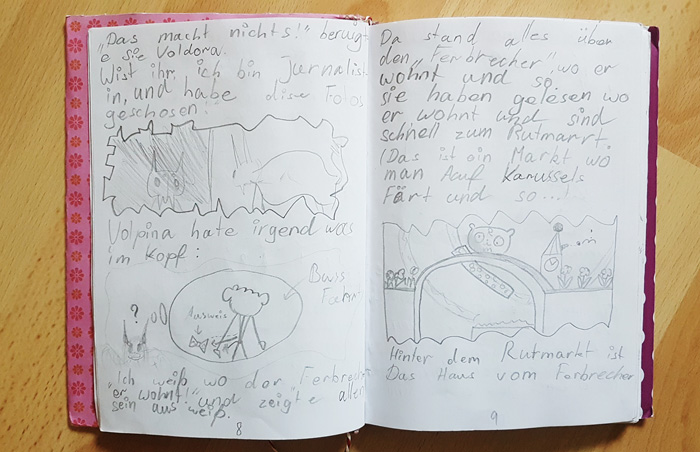 „Das macht nichts!" beruigt
e sie Voldora.
Wist ihr, ich bin Jurnalist
in, und habe dise Fotos
geschosen!"
Volpina hate irgend was
im Kopf:
?
Ausweis
„Ich weiß wo der Ferbrecher
er wohnt!" und zeigte allen
sein aus weiß.
8
Da stand alles über
den „Ferbrecher" wo er
wohnt und so,
sie haben gelesen wo
er wohnt und sind
schnell zum Rutmarkt
(Das ist ein Markt wo
man Auf Karussels
Färt und so...!
Hinter dem Rutmarkt ist
Das Haus vom Ferbrecher
9